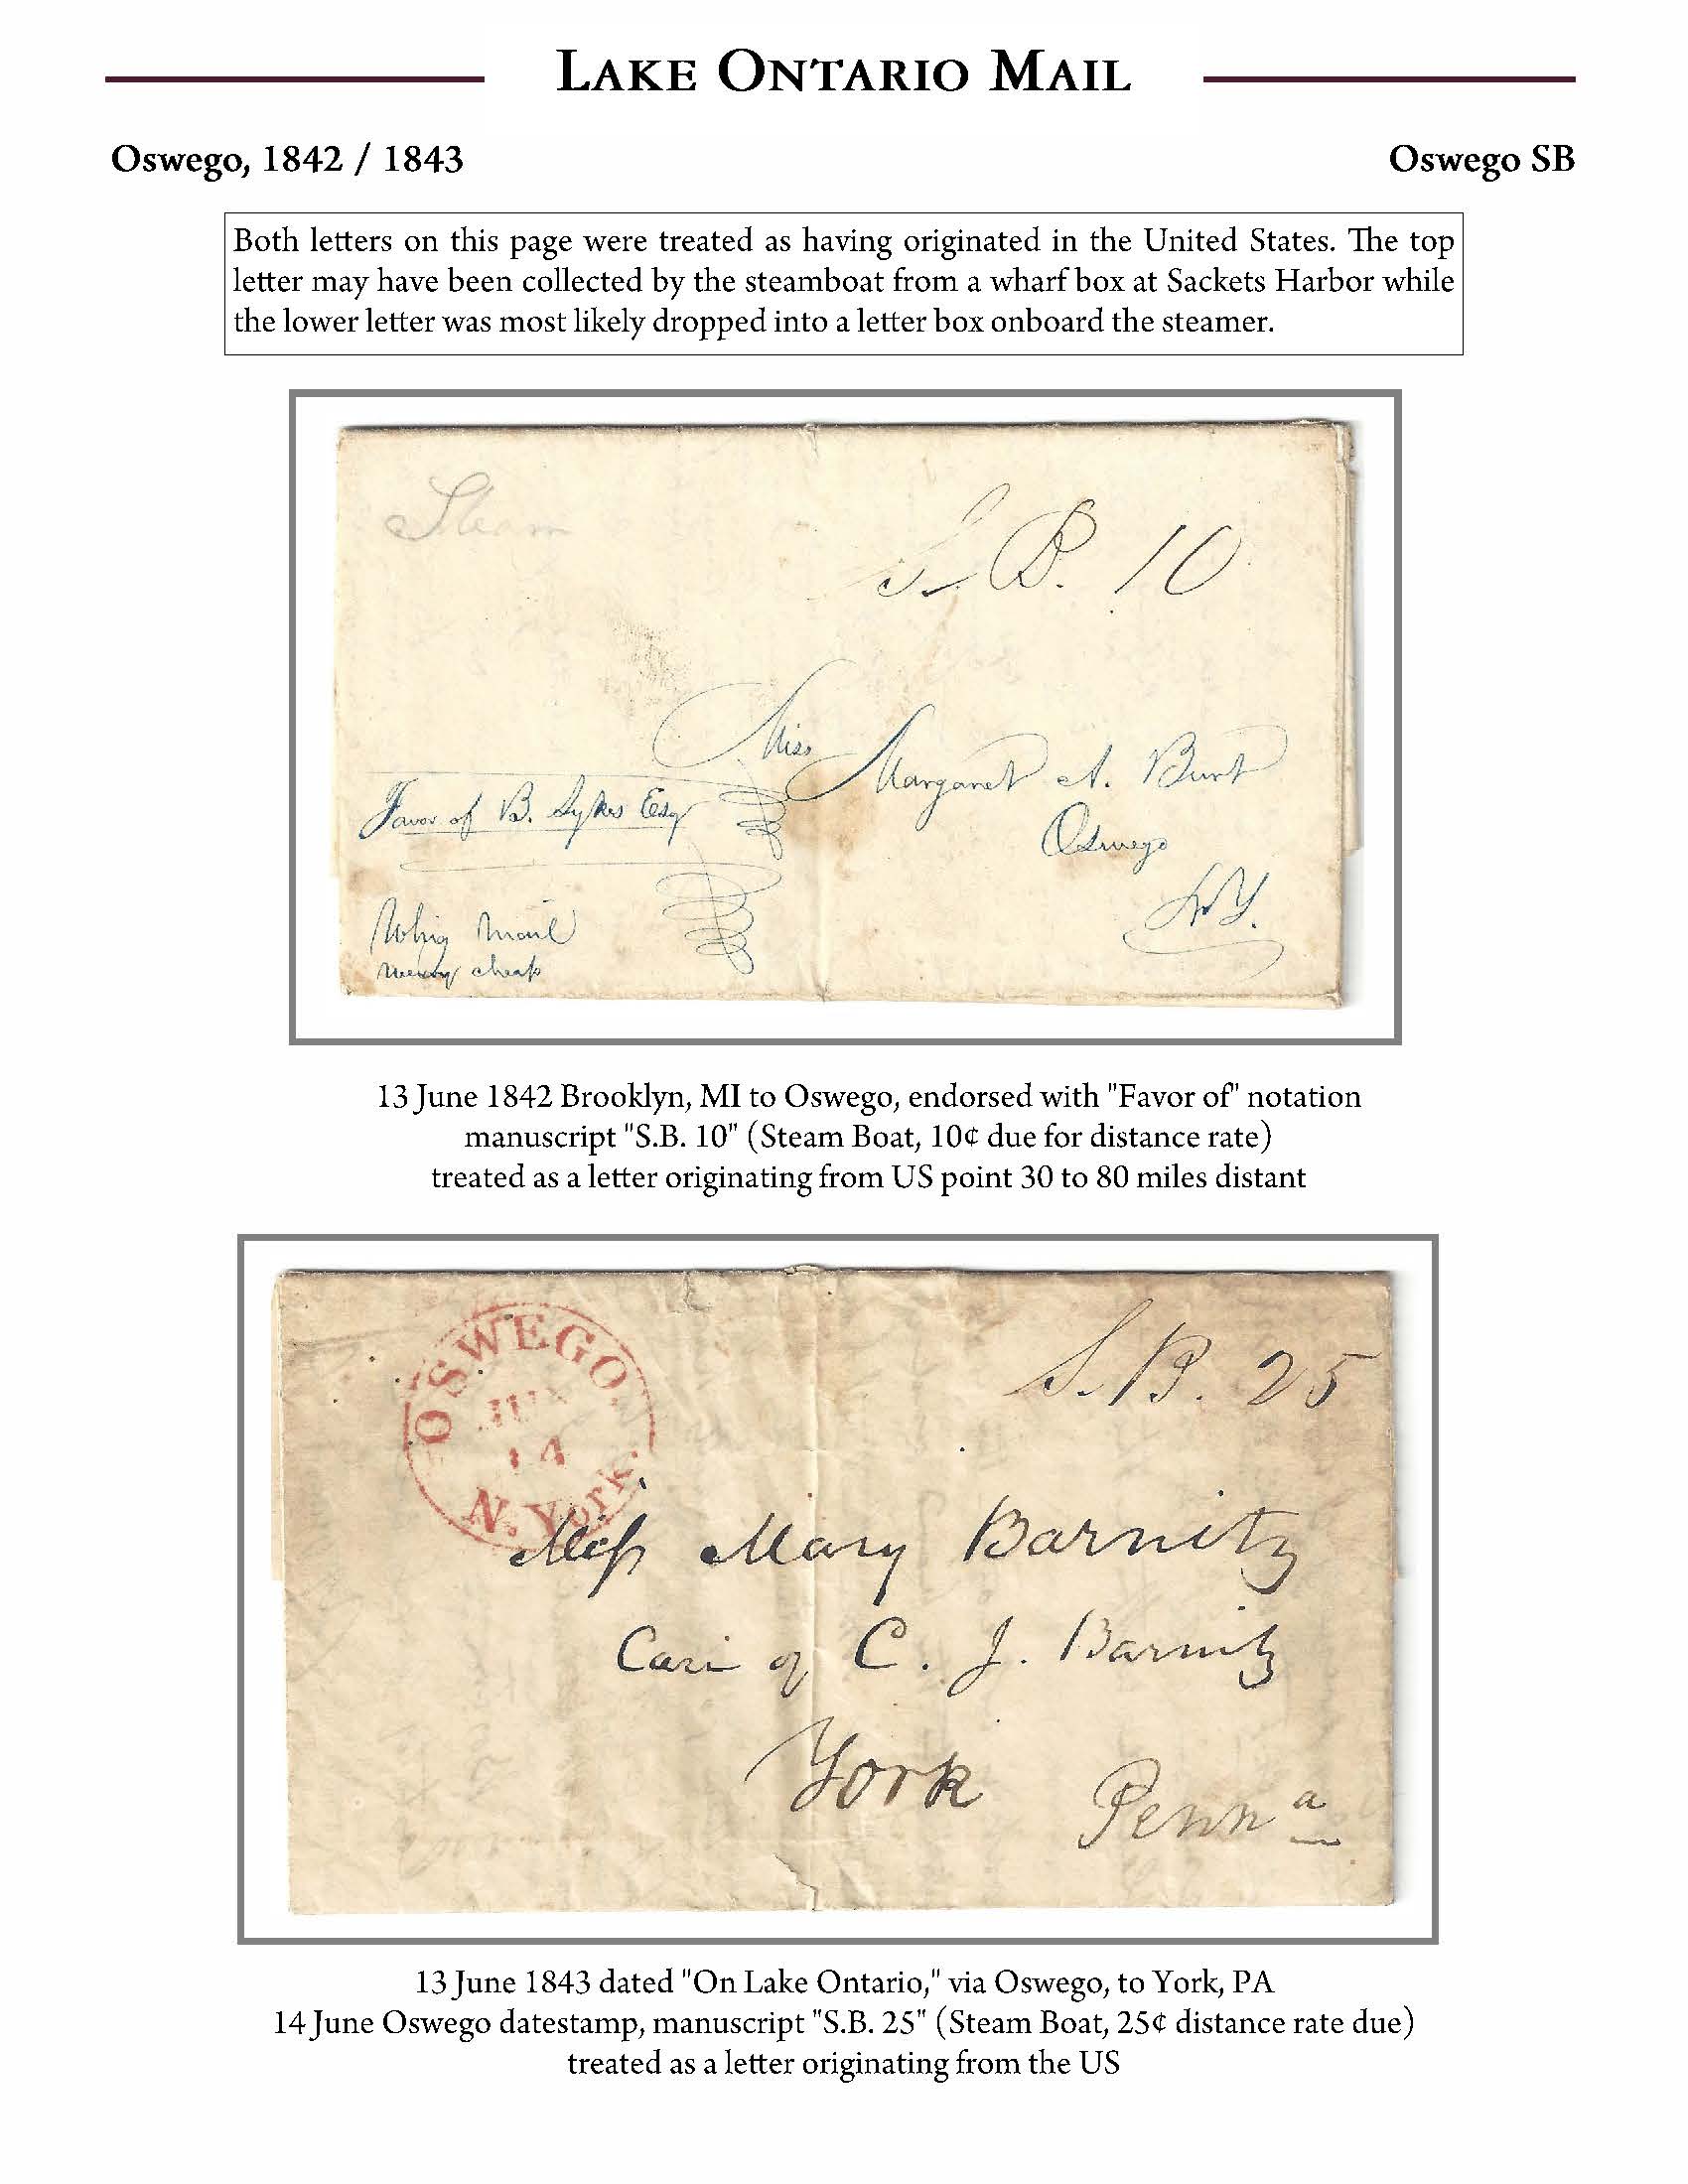 LAKE ONTARIO MAIL
Oswego, 1842 / 1843
Oswego SB
Both letters on this page were treated as having originated in the United States. The top
letter may have been collected by the steamboat from a wharf box at Sackets Harbor while
the lower letter was most likely dropped into a letter box onboard the steamer.
Steam
S. B. 10
Miss Margaret A. Burt
Favor of B. Sykes Esq
Oswego
N.Y.
Whig Mail
cheap
13 June 1842 Brooklyn, MI to Oswego, endorsed with "Favor of" notation
manuscript "S.B. 10" (Steam Boat, 10¢ due for distance rate)
treated as a letter originating from US point 30 to 80 miles distant
OSWEGO.
JUN
14
N. York.
S. B. 25
Miss Mary Barnitz
Care of C. J. Barnitz
York Penn a
13 June 1843 dated "On Lake Ontario," via Oswego, to York, PA
14 June Oswego datestamp, manuscript "S.B. 25" (Steam Boat, 25¢ distance rate due)
treated as a letter originating from the US